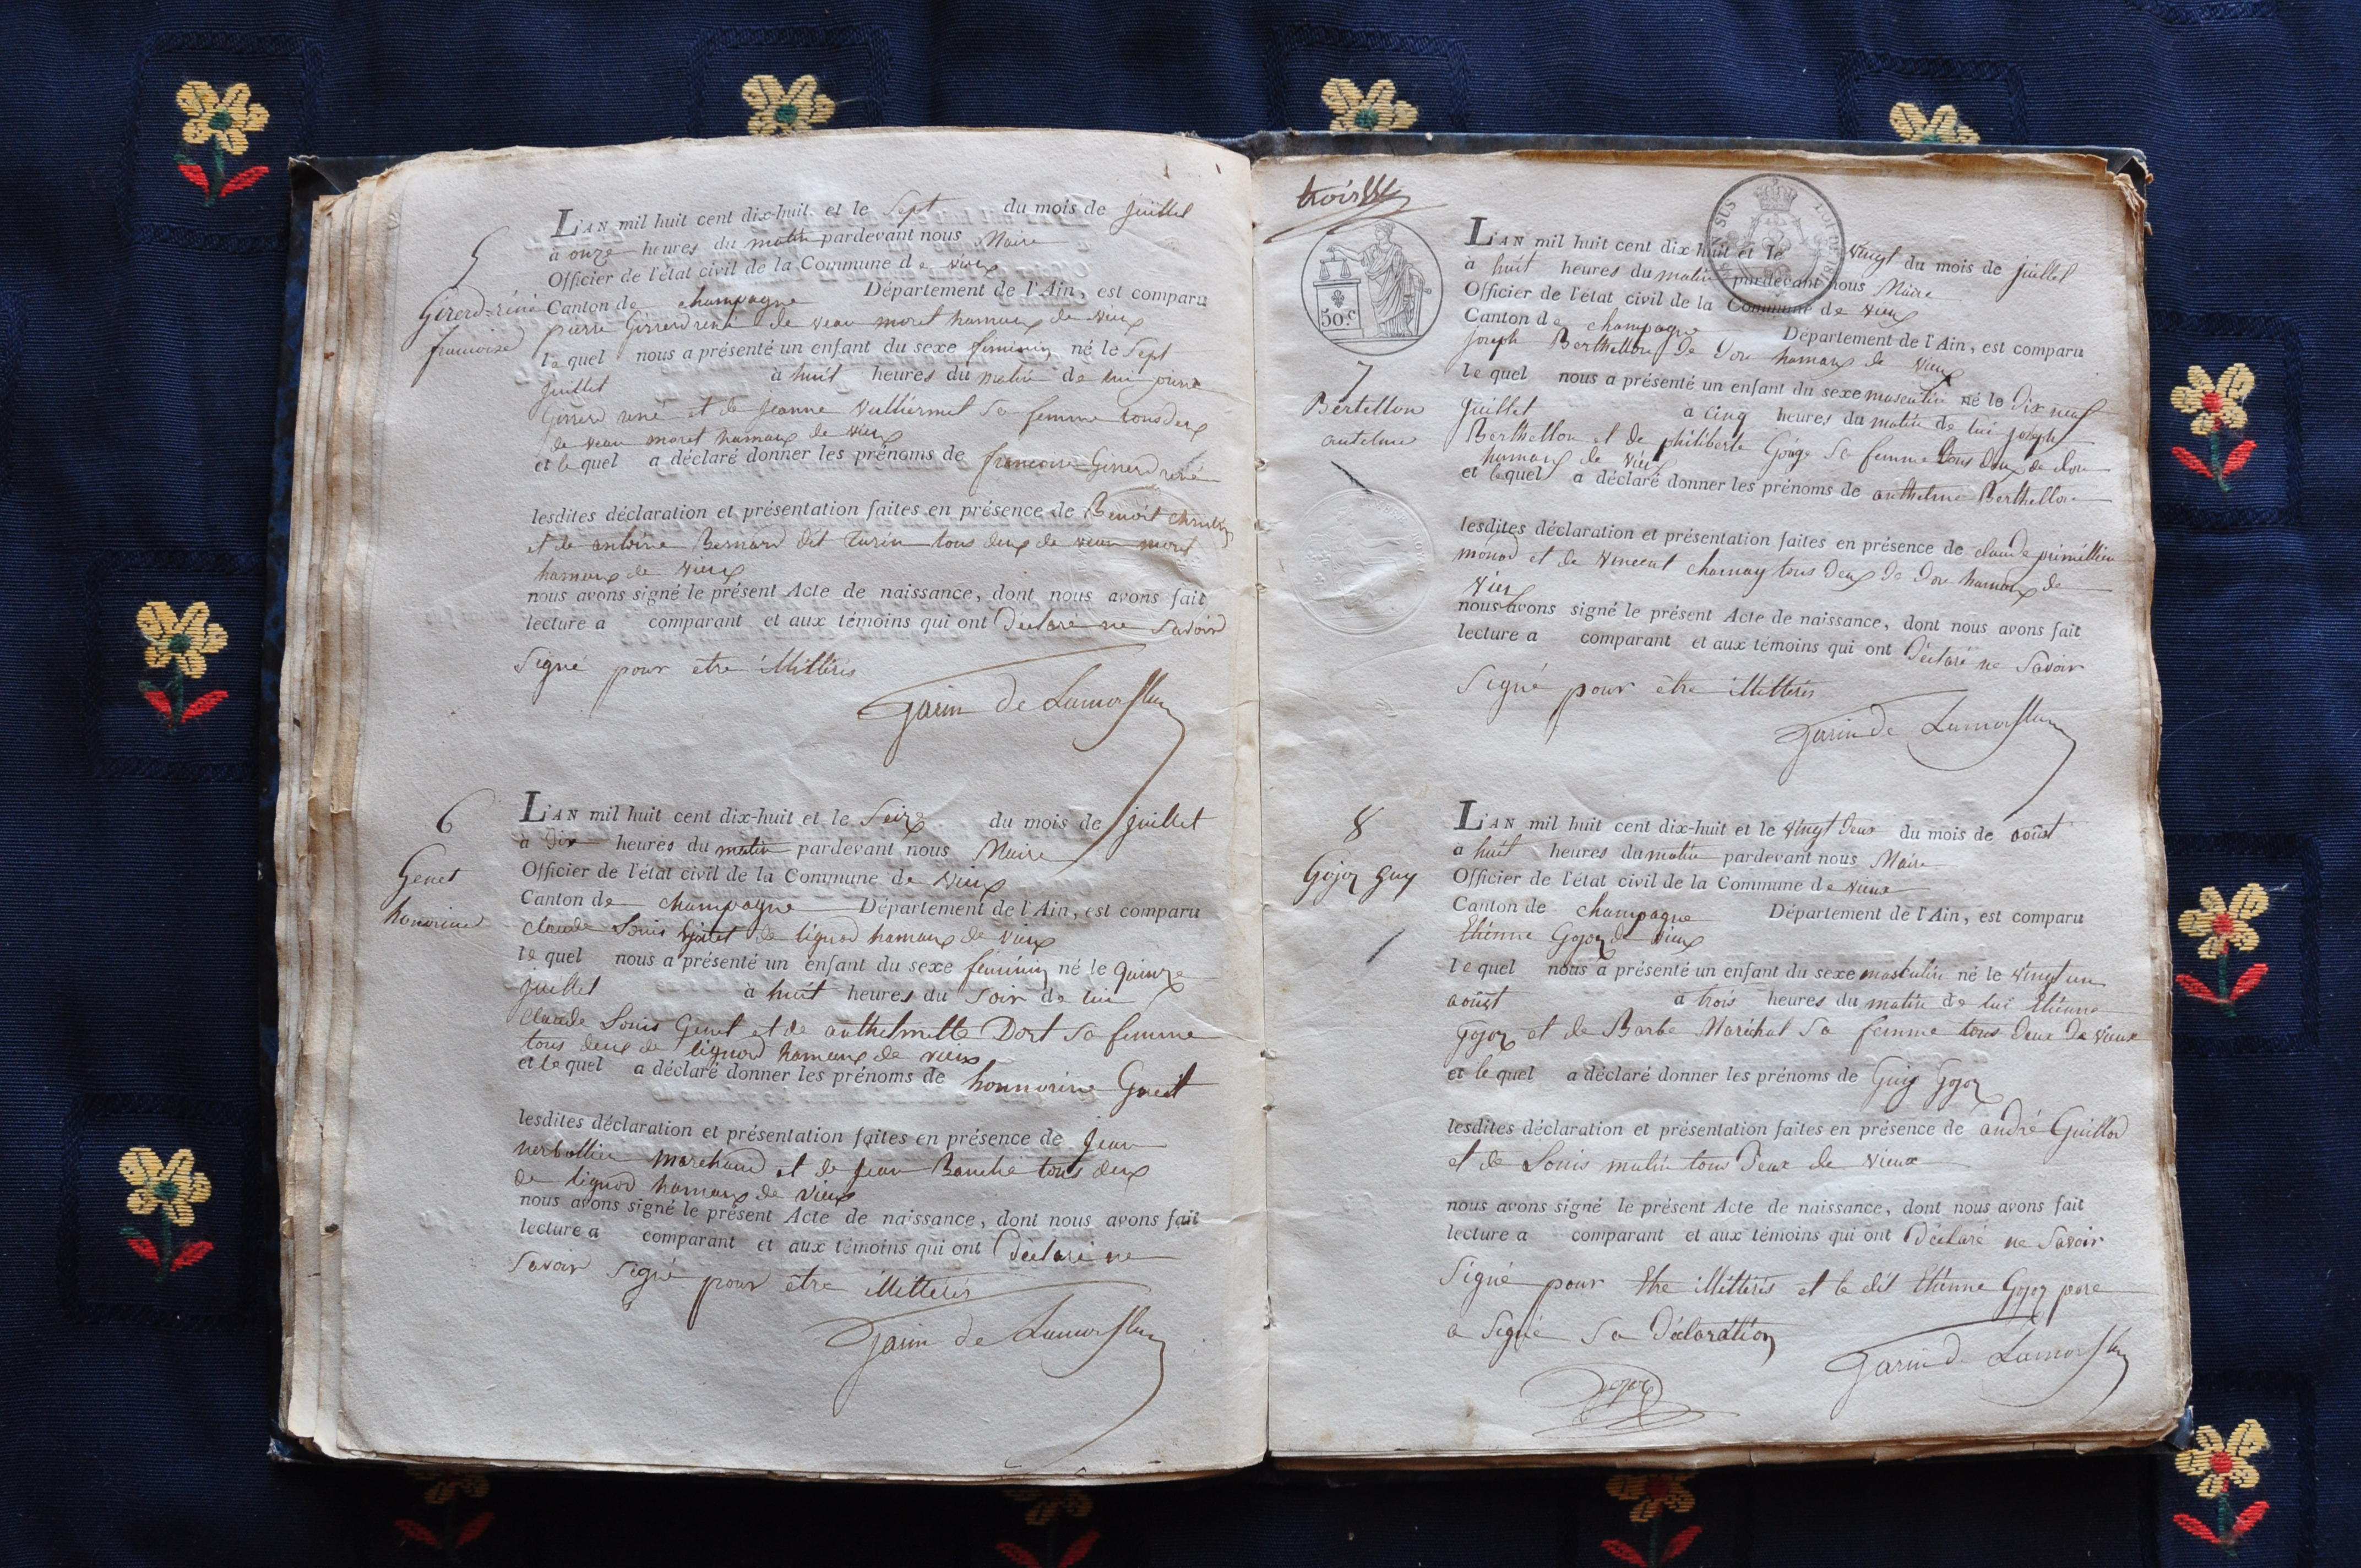 5
Girerd-réné
francoise
L'AN mil huit cent dix-huit et le Sept du mois de juillet
à onze heures du matin pardevant nous Maire
Officier de l'état civil de la Commune de vieux
Canton de champagne Département de l'Ain, est comparu
pierre Girrerd rene de veau moret hamaux de vieux
le quel nous a présenté un enfant du sexe feminin né le Sept
juillet à huit heures du matin de lui pierre
Girrerd rené et de jeanne Vulliermet Sa femme tous deux
de veau moret hamaux de vieux
et le quel a déclaré donner les prénoms de francoise Girrerd rené
lesdites déclaration et présentation faites en présence de Benoit
et de antoine Bernard dit turin tous deux de veau moret
hamaux de vieux
nous avons signé le présent Acte de naissance, dont nous avons fait
lecture a comparant et aux témoins qui ont Déclaré ne Savoir
Signé pour etre illittérés
Garin de Lamorflan
6
Genet
honorine
L'AN mil huit cent dix-huit et le Seize du mois de juillet
à Dix heures du matin pardevant nous Maire
Officier de l'état civil de la Commune de vieux
Canton de champagne Département de l'Ain, est comparu
claude Louis Genet de lignod hamaux de vieux
le quel nous a présenté un enfant du sexe féminin né le quinze
juillet à huit heures du Soir de lui
claude Louis Genet et de anthelmette Dort Sa femme
tous deux de lignod hamaux de vieux
et le quel a déclaré donner les prénoms de honnorine Genet
lesdites déclaration et présentation faites en présence de jean
marchand et de jean Banché tous deux
de lignod hamaux de vieux
nous avons signé le présent Acte de naissance, dont nous avons fait
lecture a comparant et aux témoins qui ont Déclaré ne
Savoir Signé pour être illittérés
Garin de Lamorflan
trois
50 c
7
Bertellon
antelme
L'AN mil huit cent dix huit et le vingt du mois de juillet
à huit heures du matin pardevant nous Maire
Officier de l'état civil de la Commune de vieux
Canton de champagne Département de l'Ain, est comparu
joseph Berthellon de Don hamaux de vieux
le quel nous a présenté un enfant du sexe masculin né le Dix neuf
juillet à cinq heures du matin de lui joseph
Berthellon et de philiberte Gojoz Sa femme tous deux de Don
hamaux de vieux
et le quel a déclaré donner les prénoms de anthelme Berthellon
lesdites déclaration et présentation faites en présence de claude primillieu
monod et de vincent charnay tous deux de Don hamaux de
vieux
nous avons signé le présent Acte de naissance, dont nous avons fait
lecture a comparant et aux témoins qui ont Déclaré ne Savoir
Signé pour être illittérés
Garin de Lamorflan
8
Gojoz Guy
L'AN mil huit cent dix-huit et le vingt deux du mois de août
à huit heures du matin pardevant nous Maire
Officier de l'état civil de la Commune de vieux
Canton de champagne Département de l'Ain, est comparu
Etienne Gojoz de vieux
le quel nous a présenté un enfant du sexe masculin né le vingt un
août à trois heures du matin de lui Etienne
Gojoz et de Barbe Maréchal Sa femme tous deux de vieux
et le quel a déclaré donner les prénoms de Guy Gojoz
lesdites déclaration et présentation faites en présence de andré Guillod
et de Louis mulin tous Deux de vieux
nous avons signé le présent Acte de naissance, dont nous avons fait
lecture a comparant et aux témoins qui ont Déclaré ne Savoir
Signé pour être illittérés et le dit Etienne Gojoz pere
a Signé Sa Déclaration
Gojoz
Garin de Lamorflan